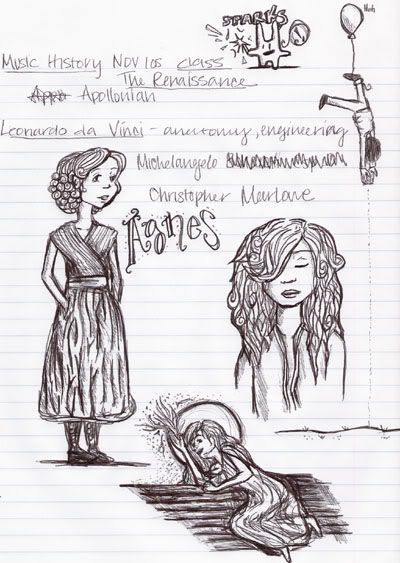 SPARKS
Music History Nov 1 05 class
The Renaissance
Apollonian
Leonardo da Vinci - anatomy, engineering
Michelangelo
Christopher Marlowe
Agnes